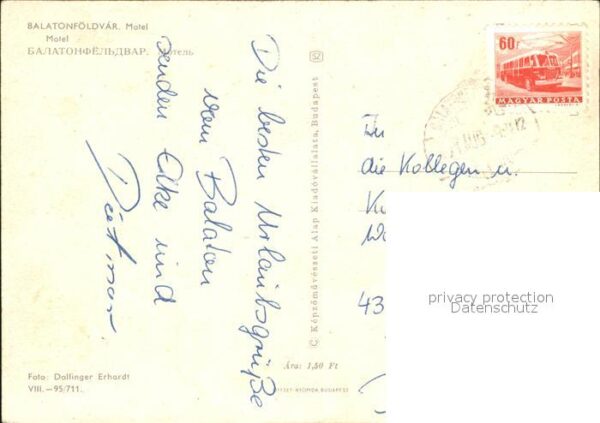 BALATONFÖLDVÁR. Motel
Motel
БАЛАТОНФЁЛЬДВАР.
Die besten Urlaubsgrüße
vom Balaton
senden Elke und
Dietmar.
© Képzőművészeti Alap Kiadóvállalata, Budapest
60f
MAGYAR POSTA
die Kollegen u.
43
privacy protection
Datenschutz
Ára: 1,50 Ft
Foto: Dolfinger Erhardt
VIII.—95/711.